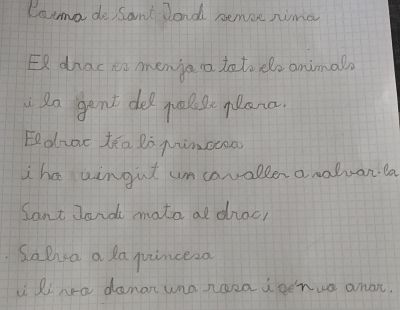 Poema de Sant Jordi sense rima
El drac es menja a tots els animals
i la gent del poble plora.
El drac té a la princesa
i ha vingut un cavaller a salvar-la
Sant Jordi mata al drac,
Salva a la princesa
i li va donar una rosa i se'n va anar.